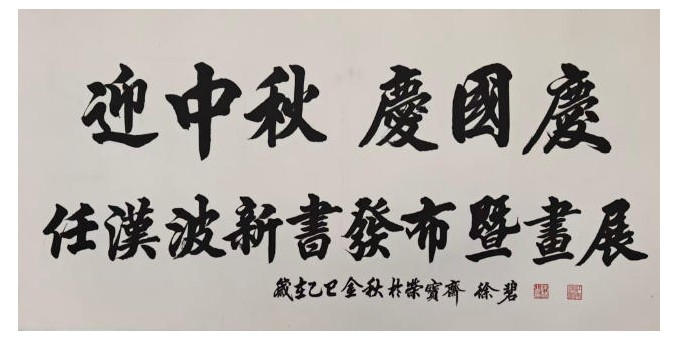 迎中秋 慶國慶
任漢波新書發布暨畫展
歲在乙巳金秋於榮寶齋 徐碧